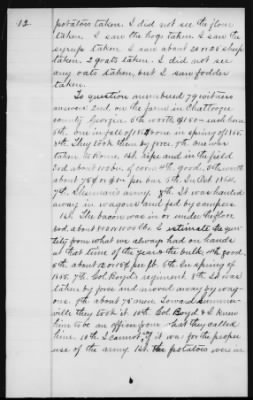 12.
potatoes taken. I did not see the flour
taken. I saw the hogs taken. I saw the
syrup taken. I saw about 20 or 25 sheep
taken. 2 goats taken. I did not see
any oats taken, but I saw fodder
taken.
To question numbered 79 witness
answers 2nd. on the farm in Chattooga
county Georgia 5th worth $150 each
6th. one in fall of 1864 one in spring of 1865.
8th. They took them by force 9th. one was
taken to Rome. 1st. ripe and in the field
3rd about 100 bu. of corn 4th. good. 5th worth
about 75¢ per bu. 6th. In
7th. Sherman's army 8th. It was hauled
away in wagons and fed by campers
1st. The bacon was in
3rd. about 1000 lbs. I estimate the quan-
tity from what we always had on hands
at that time of the year & the bulk 4th good.
5th. about per lb 6th. In spring of
1865. 7th. Col Boyd's regiment. 8th. It was
taken by force and moved away by wag-
ons. 9th. about 75 men. Toward Summer-
ville they took it 10th. Col. Boyd & I knew
him to be an officer from what they called
him. 11th. I cannot, it was for the proper
use of the army 1st. The potatoes were in